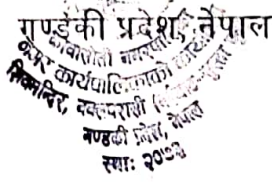 गण्डकी प्रदेश, नेपाल
कावासोती नगरपालिका
नगर कार्यपालिकाको कार्यालय
नवलपरासी
गण्डकी प्रदेश, नेपाल
स्था: २०७३